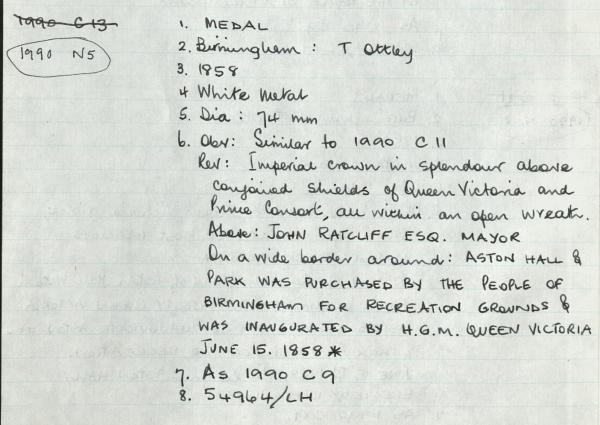 1990 C13
1990 N5
1. MEDAL
2. Birmingham : T Ottley
3. 1858
4 White Metal
5. Dia : 74 mm
6. Obv: Similar to 1990 C11
Rev: Imperial crown in splendour above
conjoined shields of Queen Victoria and
Prince Consort, all within an open wreath.
Above: JOHN RATCLIFF ESQ. MAYOR
On a wide border around: ASTON HALL &
PARK WAS PURCHASED BY THE PEOPLE OF
BIRMINGHAM FOR RECREATION GROUNDS &
WAS INAUGURATED BY H.G.M. QUEEN VICTORIA
JUNE 15. 1858 *
7. As 1990 C9
8. 54964/LH